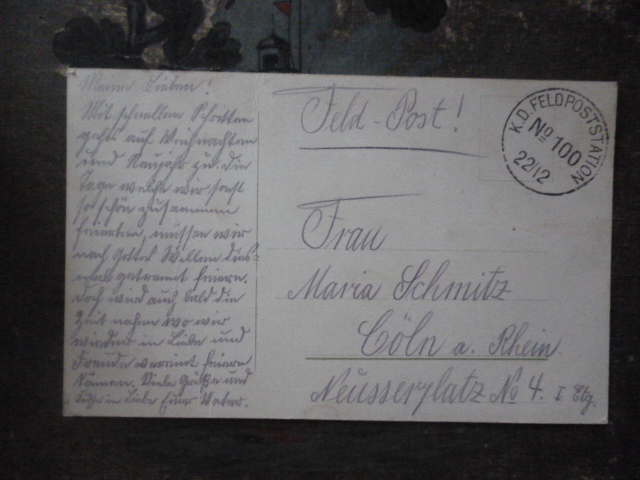 Meine Lieben!
Mit schnellen Schritten
gehts auf Weihnachten
und Neujahr zu. Die
Tage welche wir sonst
so schön zusammen
feierten, müssen wir
nach Gottes Willen dies-
mal getrennt feiern.
Doch wird auch bald die
Zeit nahen wo wir
wieder in Liebe und
Freude vereint feiern
können. Viele Grüße und
Küsse in Liebe Euer Vater.
Feld-Post!
K.D. FELDPOSTSTATION
No 100
22/12
Frau
Maria Schmitz
Cöln a. Rhein
Neusserplatz No 4. I Etg.